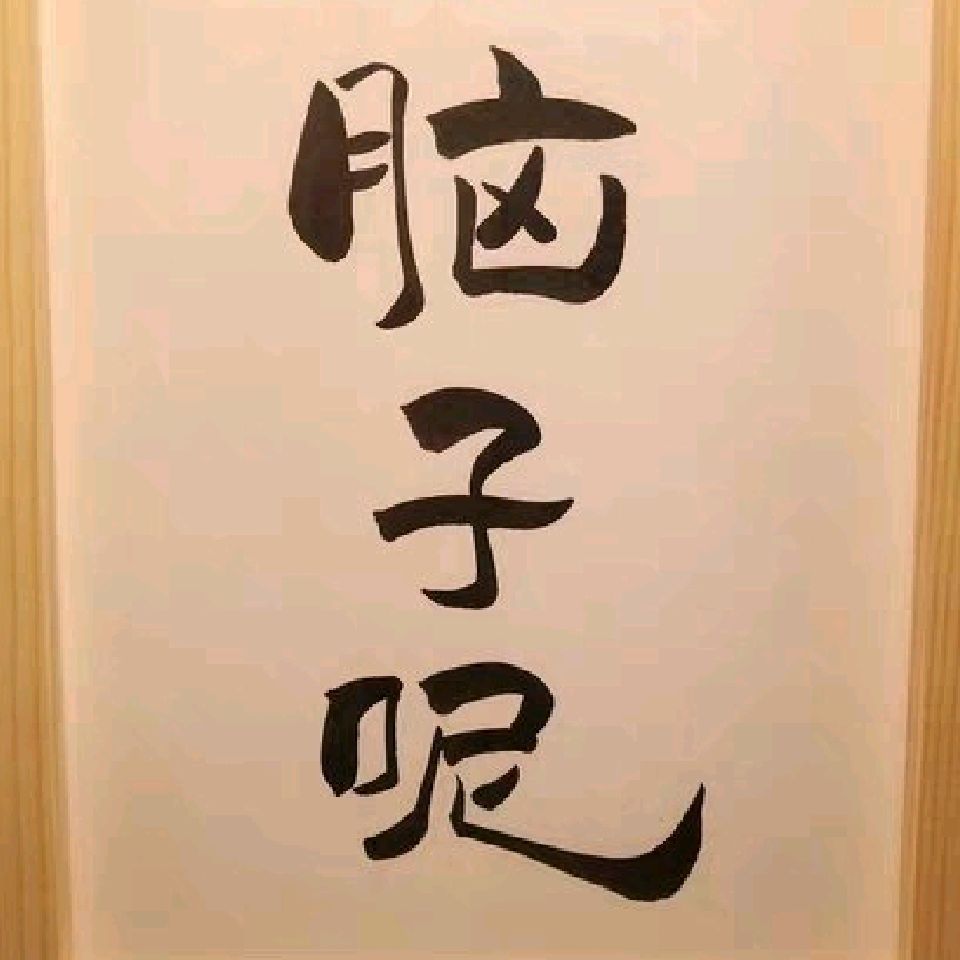 脑子呢